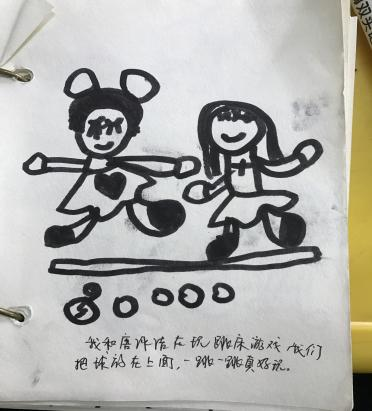 我和唐在玩跳床游戏 我们
把球放在上面,一跳一跳真好玩。
双头